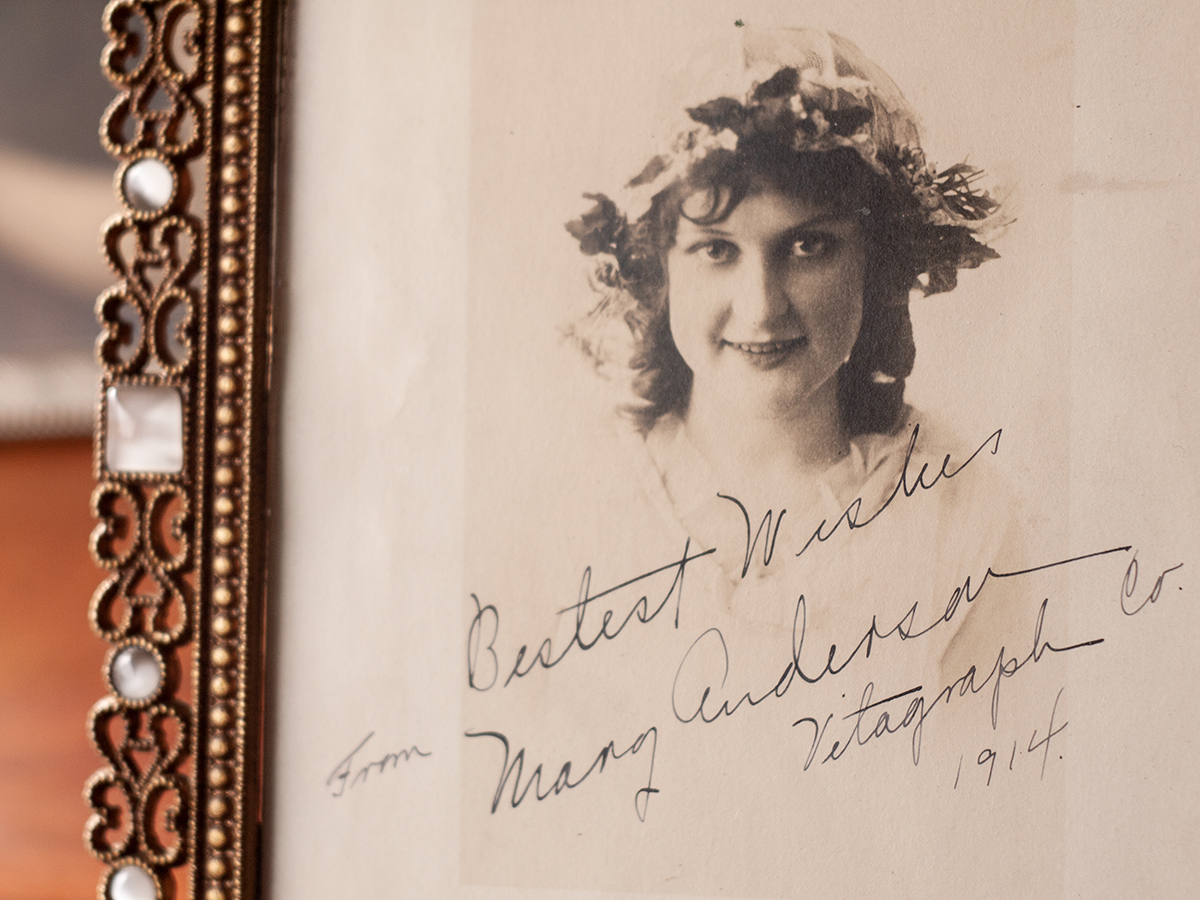 Bestest Wishes
From Mary Anderson
Vitagraph Co.
1914.